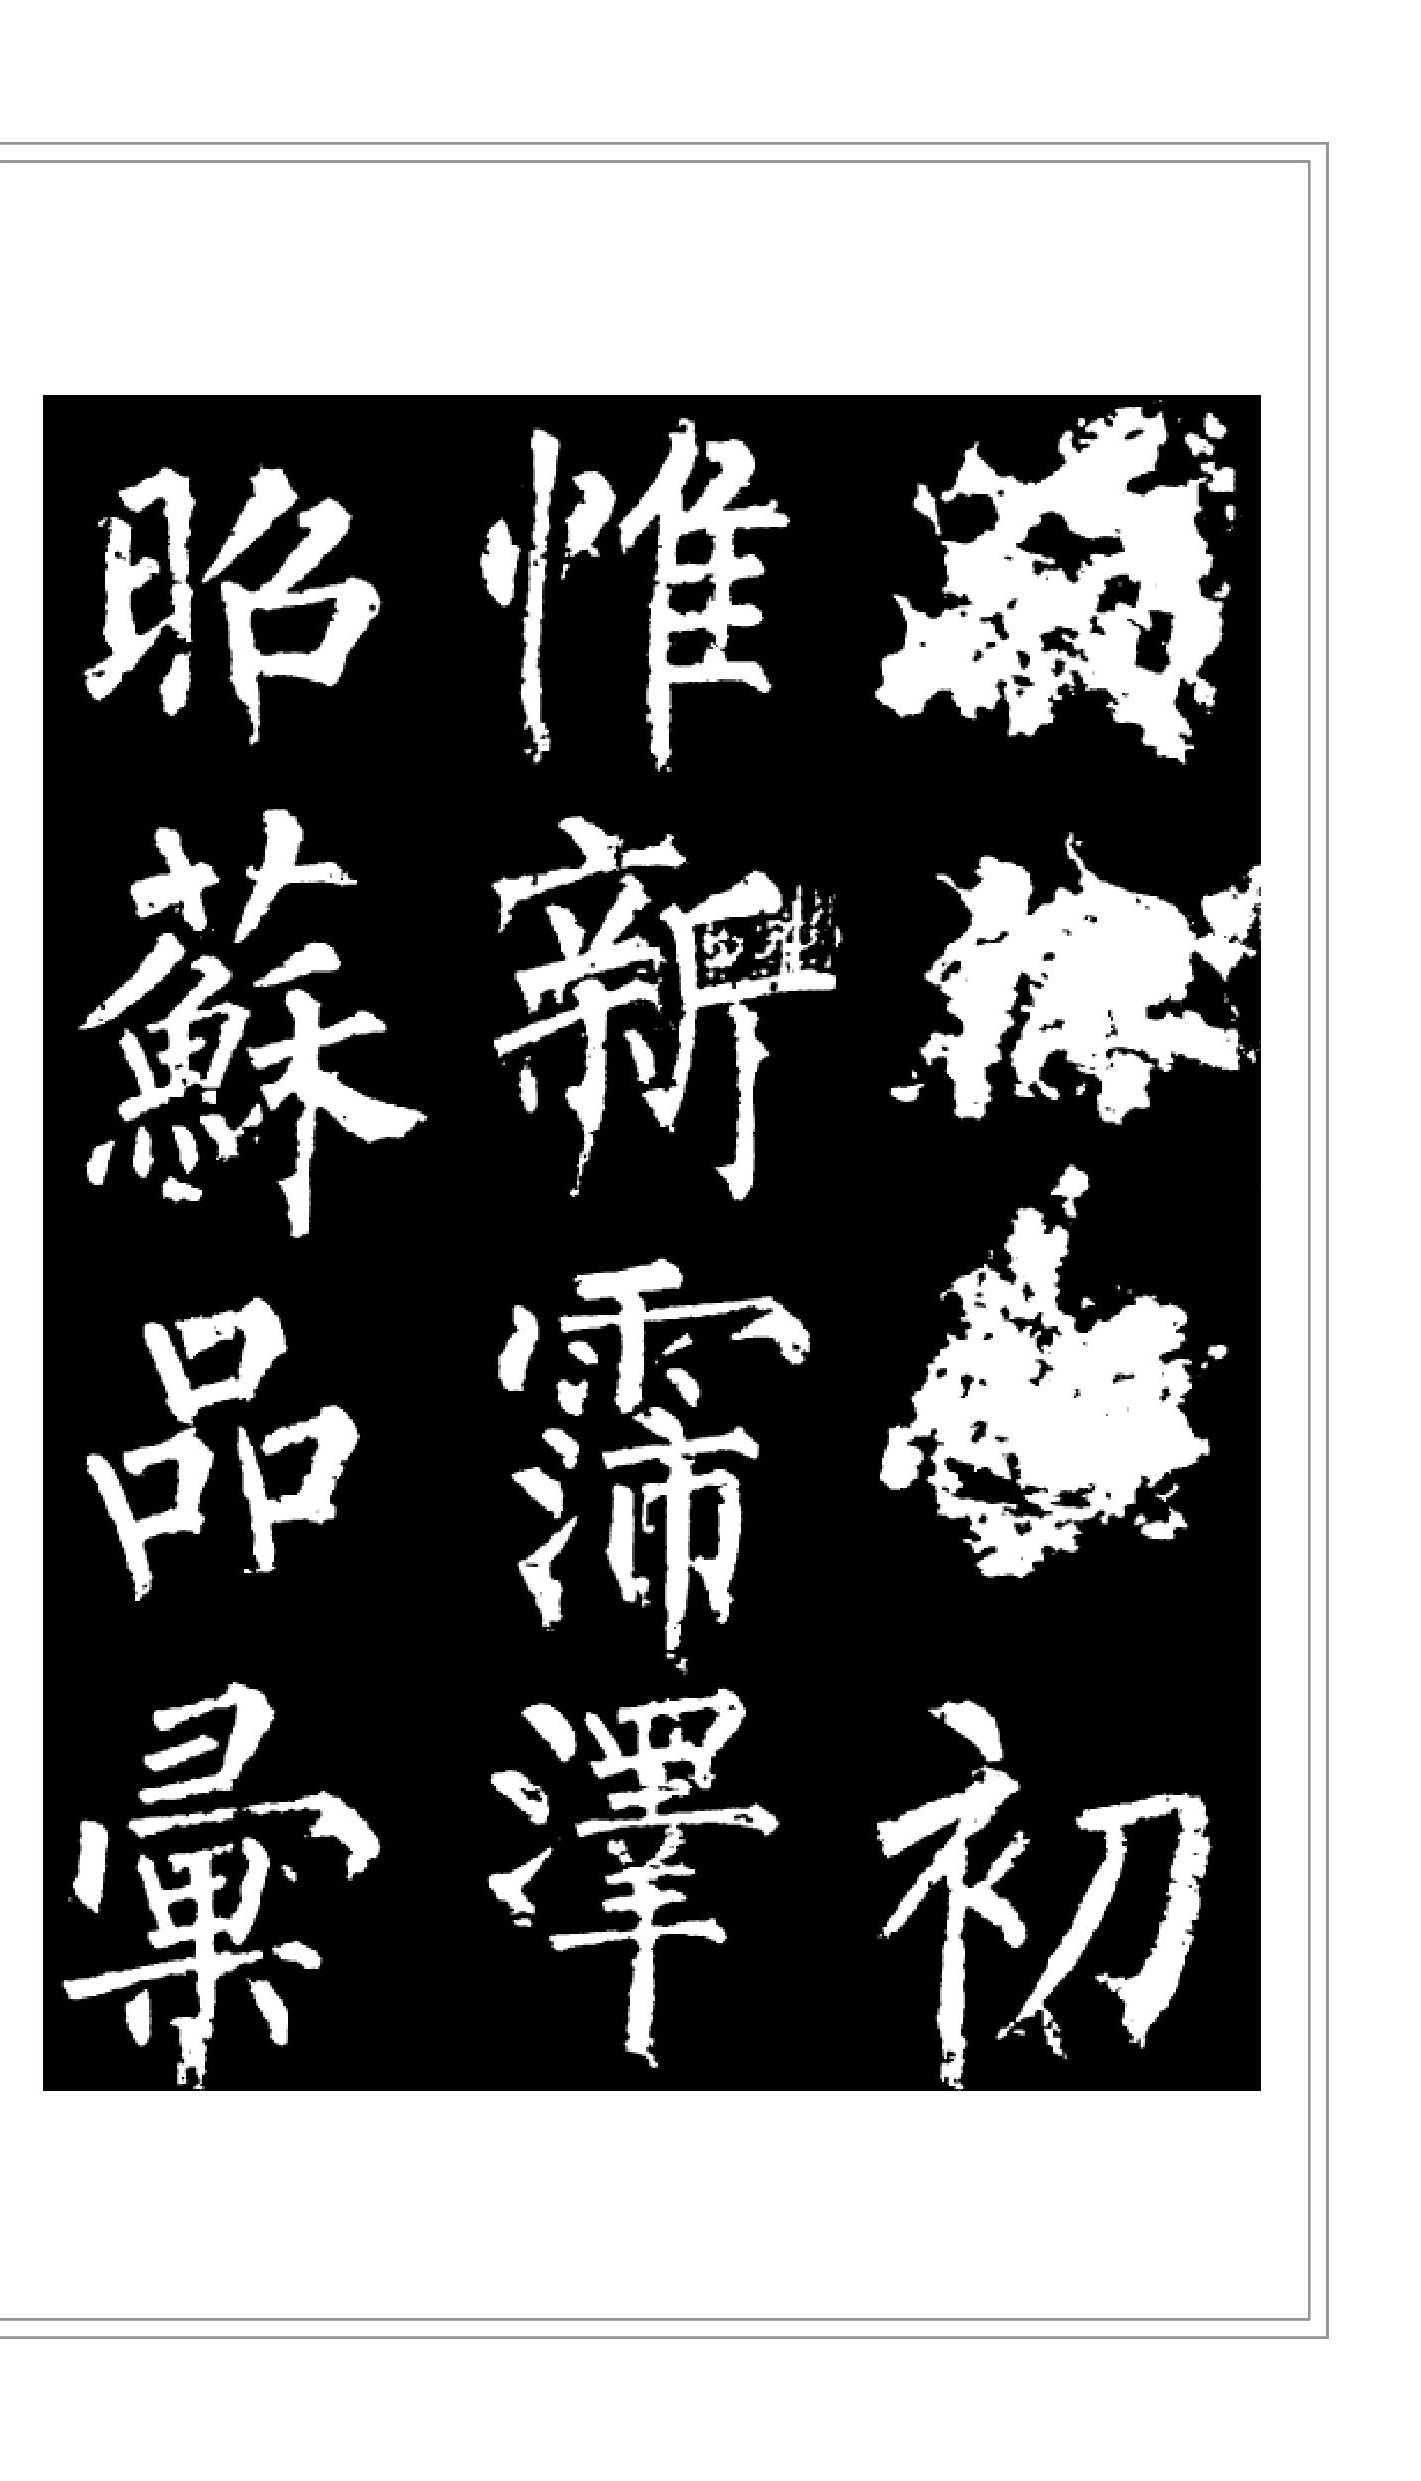 初
惟新霈澤
昭蘇品彙